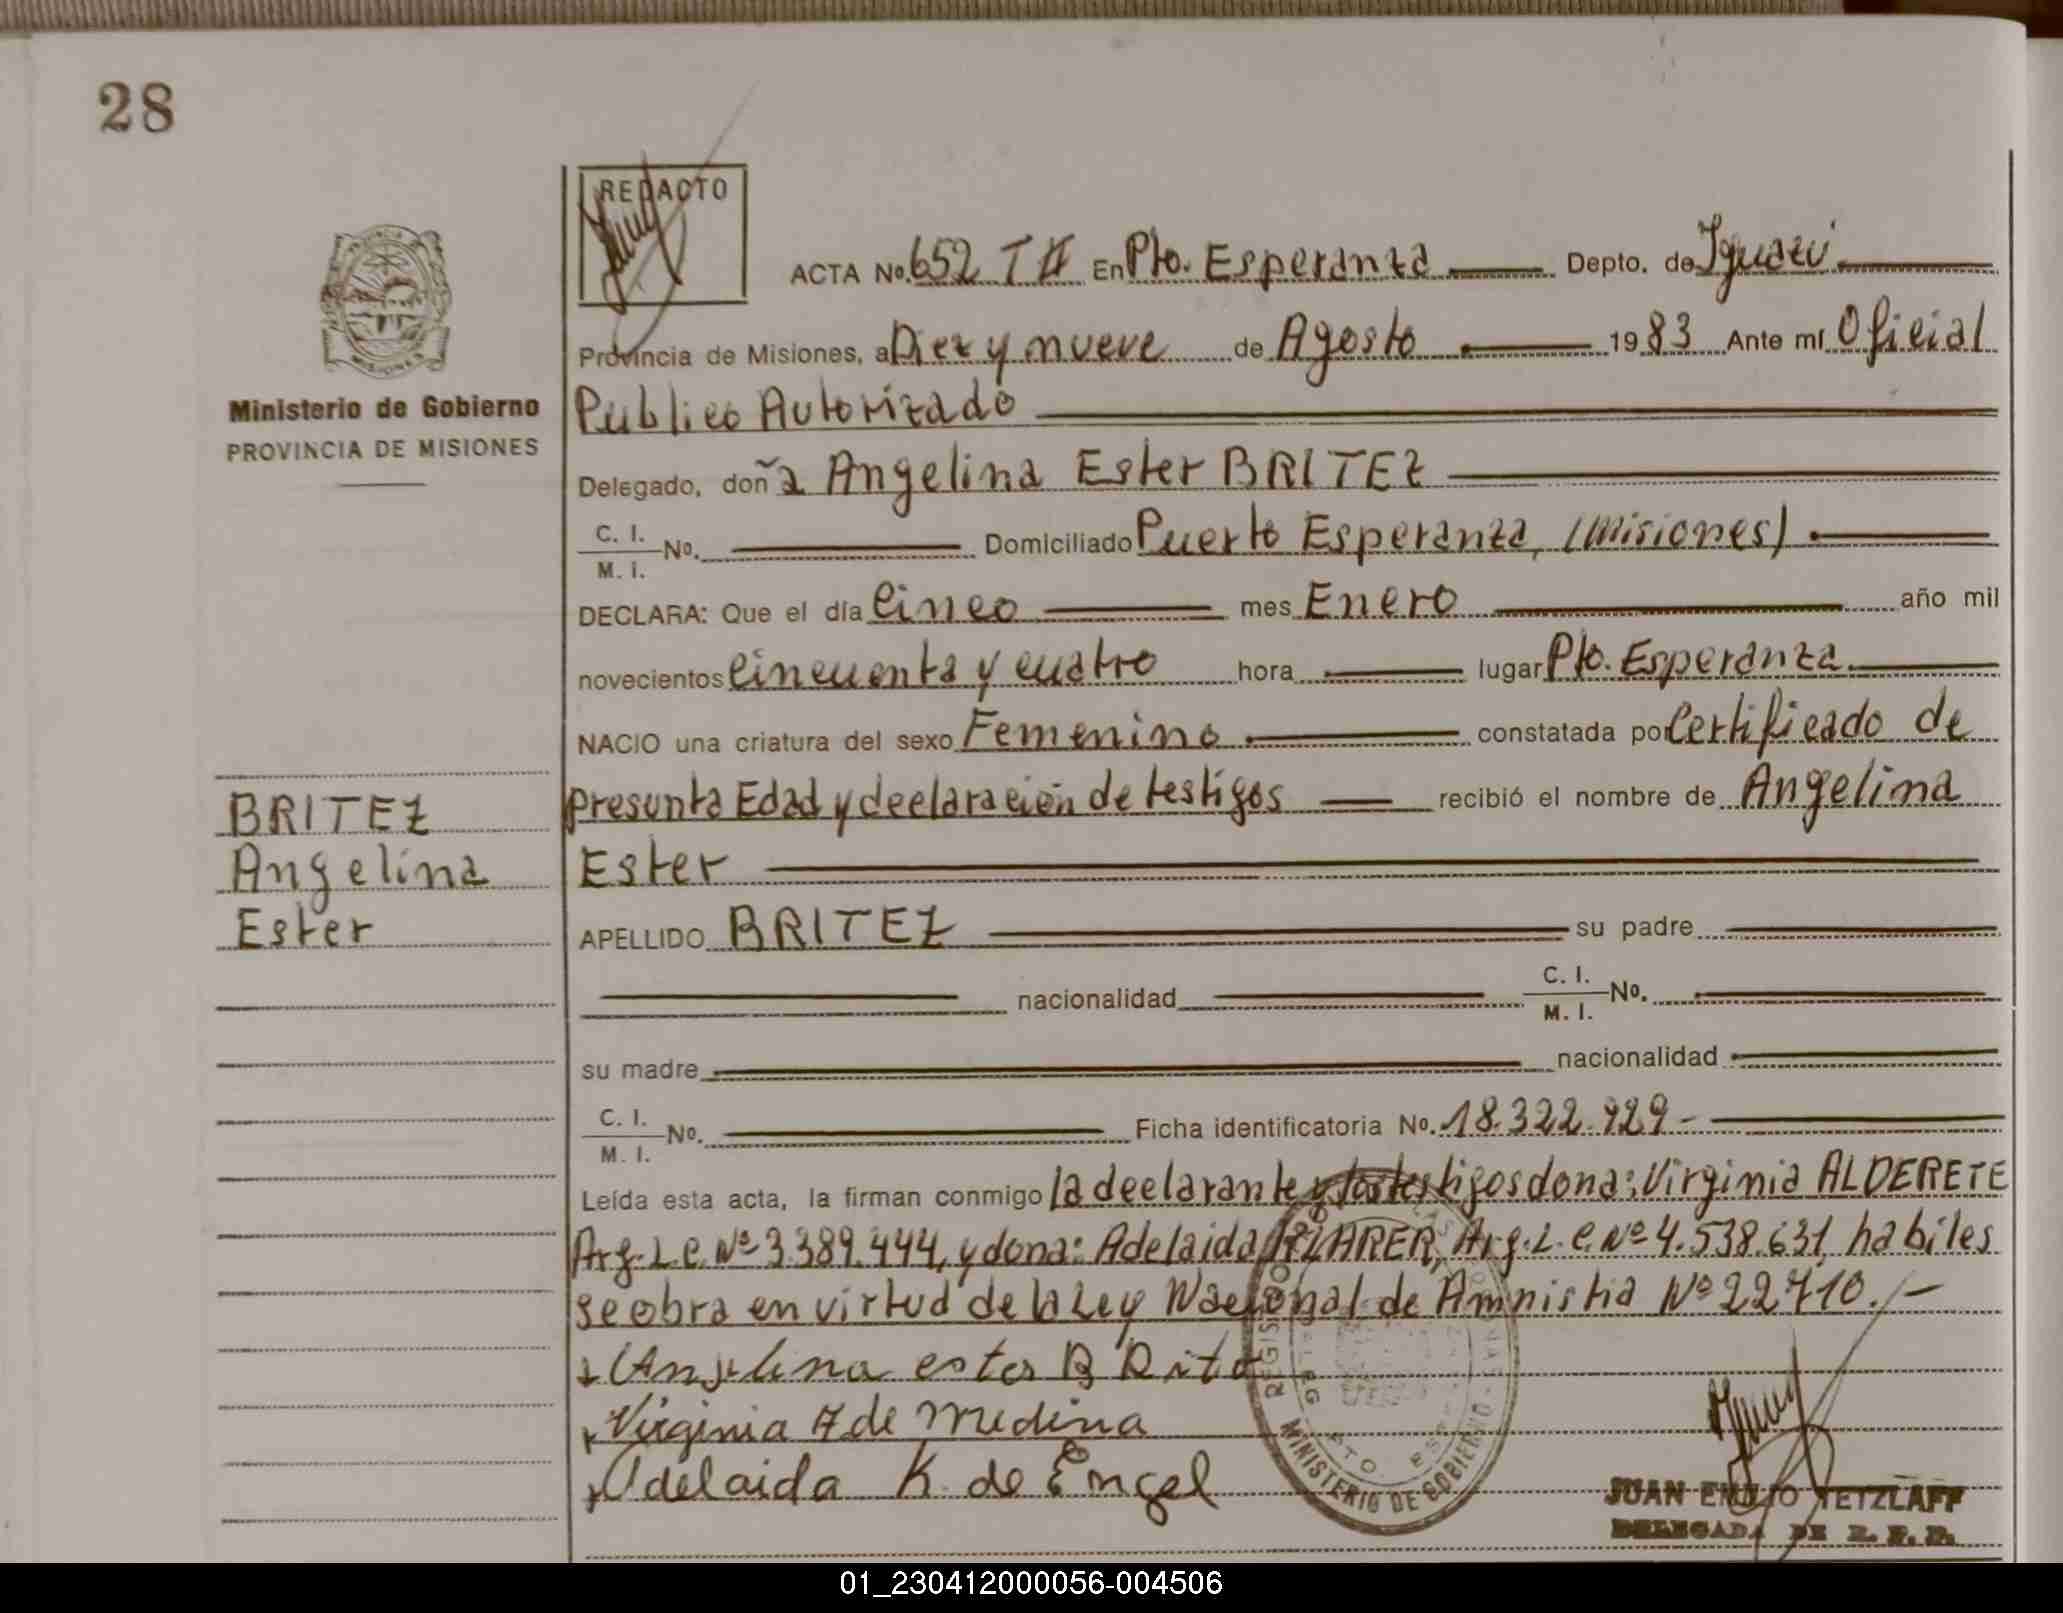 28
REDACTO
ACTA No. 652 T II En Pto. Esperanza Depto. de Iguazú
Provincia de Misiones, a Diez y nueve de Agosto 1983 Ante mí Oficial
Publico Autorizado
Ministerio de Gobierno
PROVINCIA DE MISIONES
Delegado, doña Angelina Ester BRITEZ
C. I.
M. I. No. Domiciliado Puerto Esperanza, (Misiones)
DECLARA: Que el día Cinco mes Enero año mil
novecientos Cincuenta y cuatro hora lugar Pto. Esperanza.
NACIO una criatura del sexo Femenino constatada por Certificado de
presunta Edad y declaración de testigos recibió el nombre de Angelina
Ester
BRITEZ
Angelina
Ester
APELLIDO BRITEZ su padre
nacionalidad C. I.
M. I. No.
su madre nacionalidad
C. I.
M. I. No. Ficha identificatoria No. 18.322.929-
Leída esta acta, la firman conmigo la declarante y los testigos dona: Virginia ALDERETE
Arg. L.C. Nº 3.389.444, y dona: Adelaida Arg. L.C. Nº 4.538.631, habiles
se obra en virtud de la Ley Nacional de Amnistia Nº 22710./-
Angelina ester B Rite
Virginia A de Medina
Adelaida K. de Engel
MINISTERIO DE GOBIERNO
JUAN EMILIO TETZLAFF
DELEGADA DE R. P. P.
01_230412000056-004506